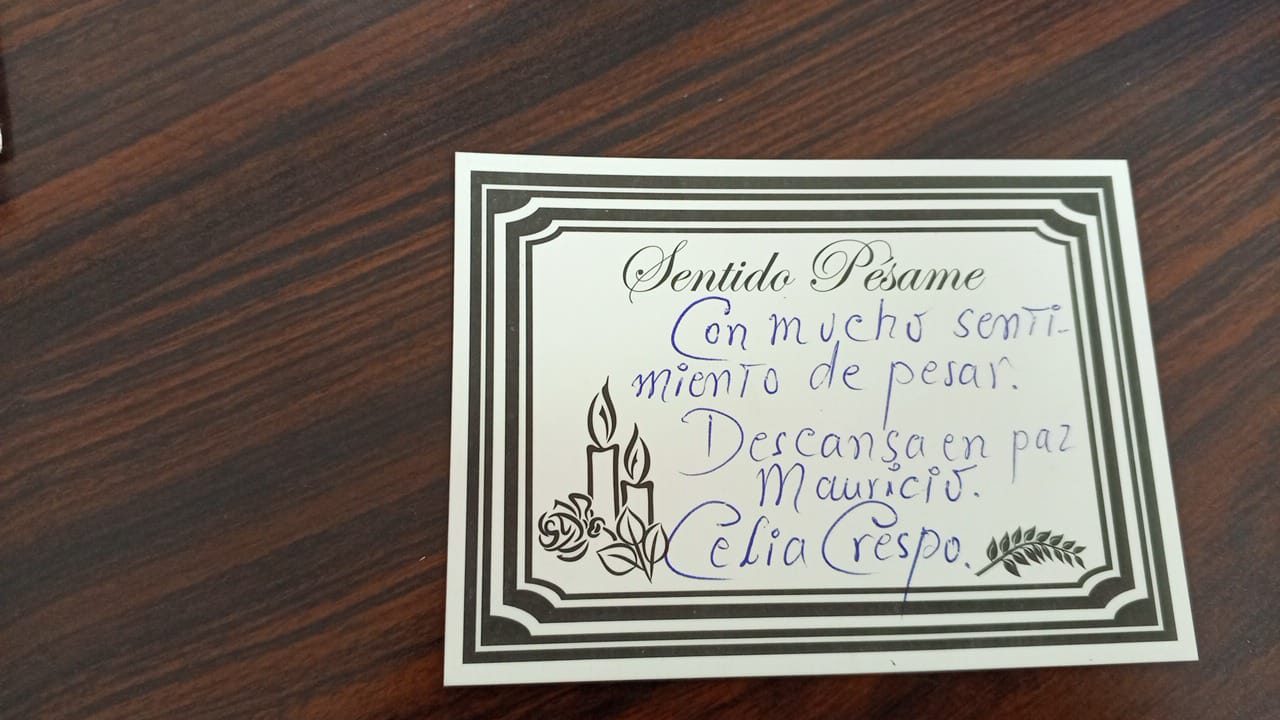 Sentido Pésame
Con mucho senti-
miento de pesar.
Descansa en paz
Mauricio.
Celia Crespo.